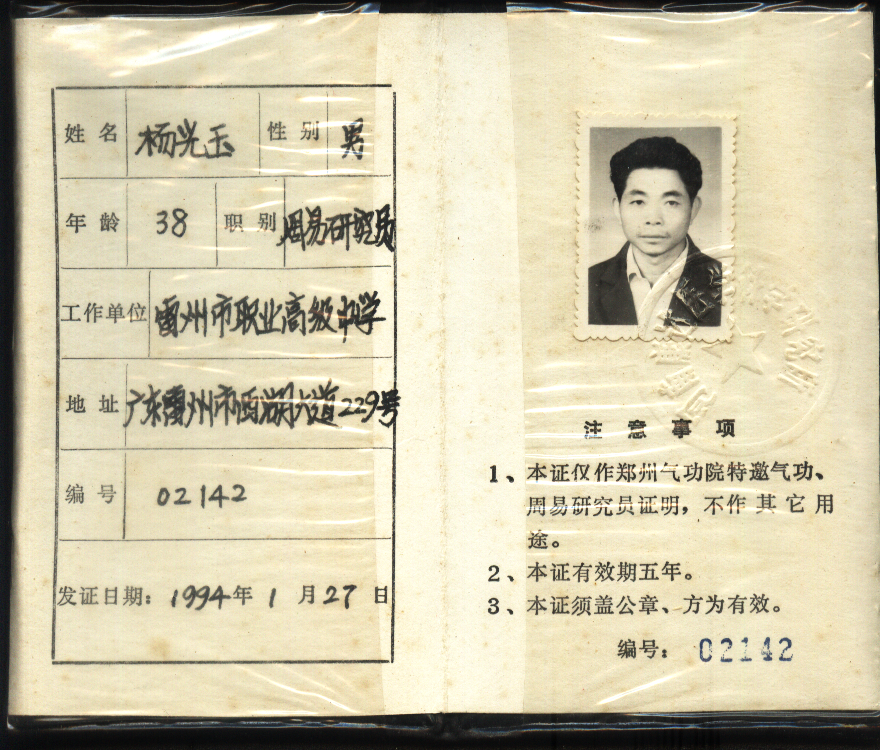 姓名 杨光玉 性别 男
年龄 38 职别 周易研究员
工作单位 雷州市职业高级中学
地址 广东雷州市西湖大道229号
编号 02142
发证日期：1994年1月27日
注意事项
1、本证仅作郑州气功院特邀气功、
周易研究员证明，不作其它用
途。
2、本证有效期五年。
3、本证须盖公章、方为有效。
编号：02142